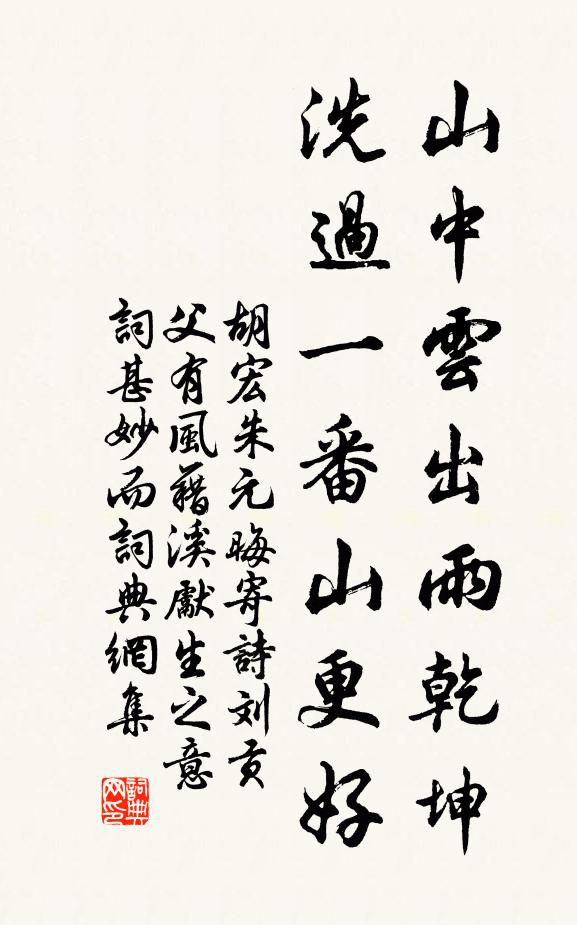 山中雲出雨乾坤
洗過一番山更好
胡宏朱元晦寄詩刘贡
父有風藉溪獻生之意
詞甚妙而詞典網集
詞典
网印